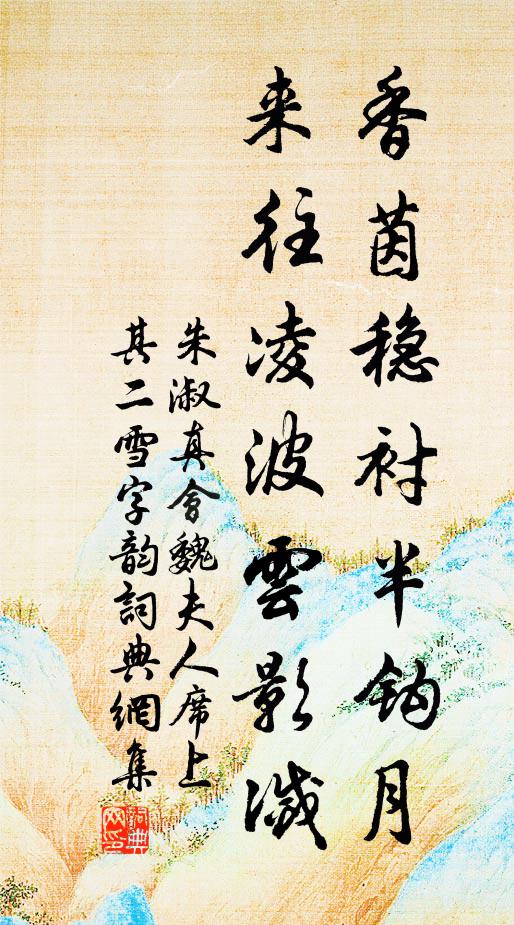 香茵稳衬半钩月
来往凌波雲影滅
朱淑真會魏夫人席上
其二雪字韵詞典網集
詞典網印